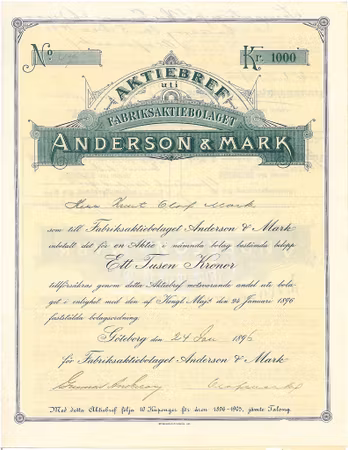 No
Kr. 1000
AKTIEBREF
uti
FABRIKSAKTIEBOLAGET
ANDERSON & MARK
Herr Knut Olof Mark
som till Fabriksaktiebolaget Anderson & Mark
inbetalt det för en Aktie i nämnda bolag bestämda belopp
Ett Tusen Kronor
tillförsäkras genom detta Aktiebref motsvarande andel uti bola-
get i enlighet med den af Kongl. Maj:t den 24 Januari 1896
fastställda bolagsordning.
Göteborg den 24 Jan 1896
för Fabriksaktiebolaget Anderson & Mark
Med detta Aktiebref följa 10 Kuponger för åren 1896-1905, jämte Talong.